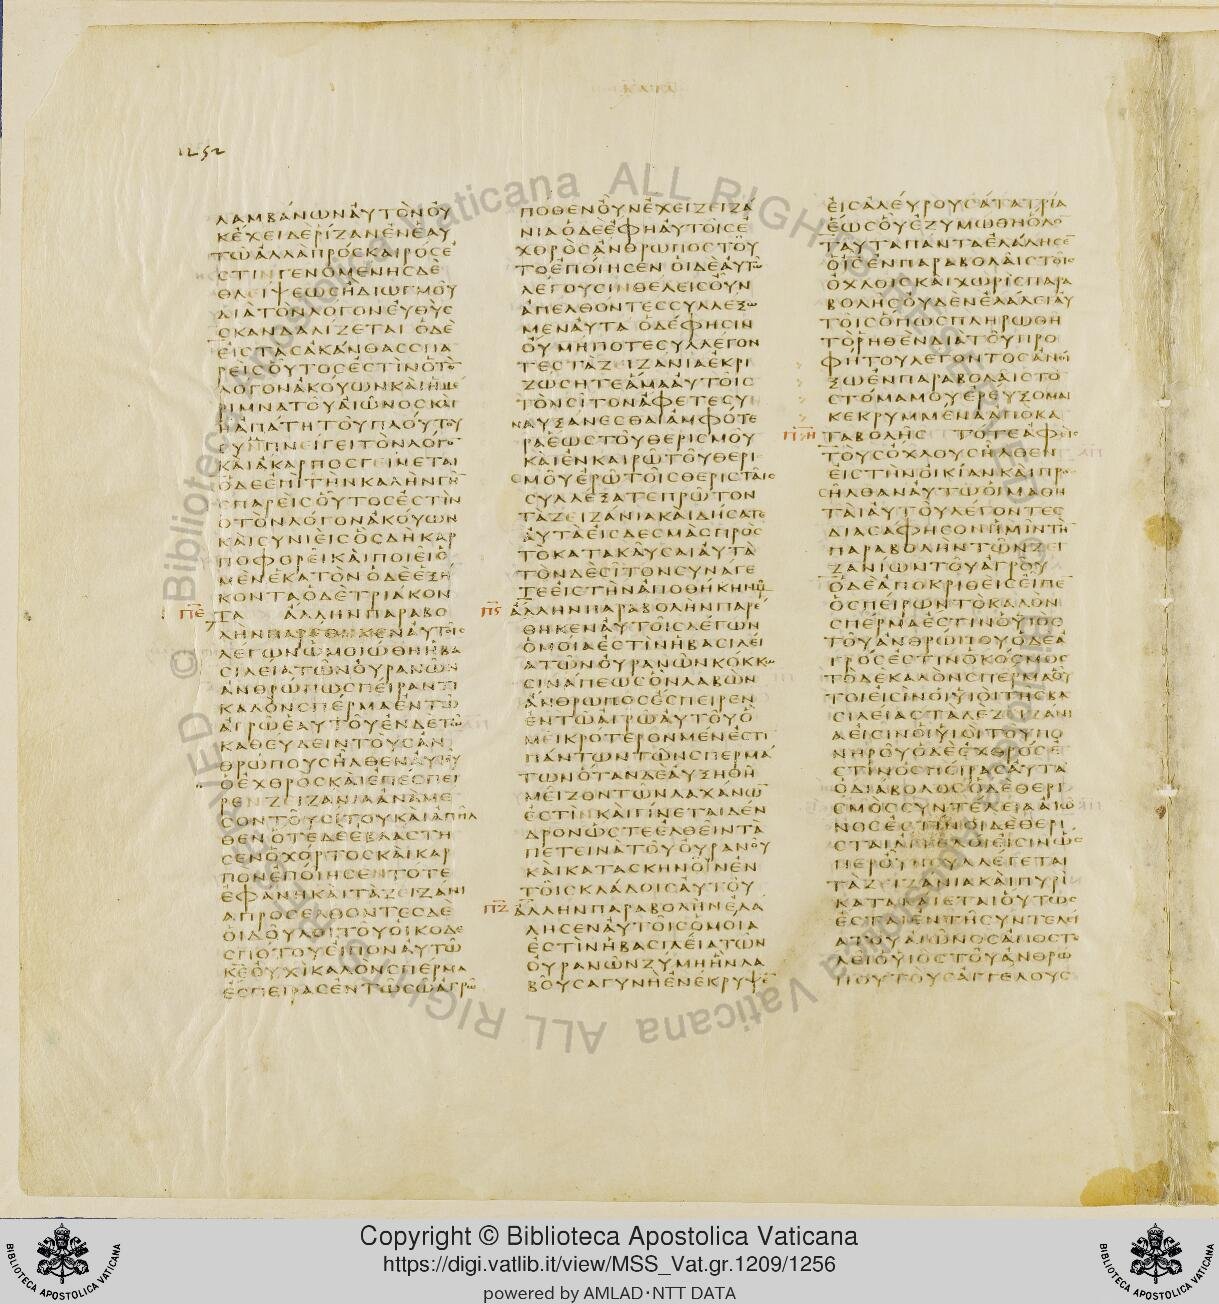 1252
ΛΑΜΒΑΝΩΝΑΥΤΟΝΟΥ
ΚΕΧΕΙΔΕΡΙΖΑΝΕΝΕΑΥ
ΤΩΑΛΛΑΠΡΟΣΚΑΙΡΟΣΕ
ΣΤΙΝΓΕΝΟΜΕΝΗΣΔΕ
ΘΛΕΙΨΕΩΣΗΔΙΩΓΜΟΥ
ΔΙΑΤΟΝΛΟΓΟΝΕΥΘΥΣ
ΣΚΑΝΔΑΛΙΖΕΤΑΙ ΟΔΕ
ΕΙΣΤΑΣΑΚΑΝΘΑΣΣΠΑ
ΡΕΙΣΟΥΤΟΣΕΣΤΙΝΟΤΟ
ΛΟΓΟΝΑΚΟΥΩΝΚΑΙΗΜΕ
ΡΙΜΝΑΤΟΥΑΙΩΝΟΣΚΑΙ
ΗΑΠΑΤΗΤΟΥΠΛΟΥΤΟΥ
ΣΥΠΝΕΙΓΕΙΤΟΝΛΟΓΟ
ΚΑΙΑΚΑΡΠΟΣΓΕΙΝΕΤΑΙ
ΟΔΕΕΠΙΤΗΝΚΑΛΗΝΓΗ
ΣΠΑΡΕΙΣΟΥΤΟΣΕΣΤΙΝ
ΟΤΟΝΛΟΓΟΝΑΚΟΥΩΝ
ΚΑΙΣΥΝΙΕΙΣΟΣΔΗΚΑΡ
ΠΟΦΟΡΕΙΚΑΙΠΟΙΕΙΟ
ΜΕΝΕΚΑΤΟΝΟΔΕΕΞΗ
ΚΟΝΤΑΟΔΕΤΡΙΑΚΟΝ
ΠΕ ΤΑ ΑΛΛΗΝΠΑΡΑΒΟ
ΛΗΝΠΑΡΕΘΗΚΕΝΑΥΤΟΙΣ
ΛΕΓΩΝΩΜΟΙΩΘΗΗΒΑ
ΣΙΛΕΙΑΤΩΝΟΥΡΑΝΩΝ
ΑΝΘΡΩΠΩΣΠΕΙΡΑΝΤΙ
ΚΑΛΟΝΣΠΕΡΜΑΕΝΤΩ
ΑΓΡΩΕΑΥΤΟΥΕΝΔΕΤΩ
ΚΑΘΕΥΔΕΙΝΤΟΥΣΑΝ
ΘΡΩΠΟΥΣΗΛΘΕΝΑΥΤΟΥ
ΟΕΧΘΡΟΣΚΑΙΕΠΕΣΠΕΙ
ΡΕΝΖΕΙΖΑΝΙΑΑΝΑΜΕ
ΣΟΝΤΟΥΣΙΤΟΥΚΑΙΑΠΗΛ
ΘΕΝΟΤΕΔΕΕΒΛΑΣΤΗ
ΣΕΝΟΧΟΡΤΟΣΚΑΙΚΑΡ
ΠΟΝΕΠΟΙΗΣΕΝΤΟΤΕ
ΕΦΑΝΗΚΑΙΤΑΖΕΙΖΑΝΙ
ΑΠΡΟΣΕΛΘΟΝΤΕΣΔΕ
ΟΙΔΟΥΛΟΙΤΟΥΟΙΚΟΔΕ
ΣΠΟΤΟΥΕΙΠΟΝΑΥΤΩ
ΚΕΟΥΧΙΚΑΛΟΝΣΠΕΡΜΑ
ΕΣΠΕΙΡΑΣΕΝΤΩΣΩΑΓΡΩ
ΠΟΘΕΝΟΥΝΕΧΕΙΖΕΙΖΑ
ΝΙΑΟΔΕΕΦΗΑΥΤΟΙΣΕ
ΧΘΡΟΣΑΝΘΡΩΠΟΣΤΟΥ
ΤΟΕΠΟΙΗΣΕΝ ΟΙΔΕΑΥΤΩ
ΛΕΓΟΥΣΙΝΘΕΛΕΙΣΟΥΝ
ΑΠΕΛΘΟΝΤΕΣΣΥΛΛΕΞΩ
ΜΕΝΑΥΤΑ ΟΔΕΦΗΣΙΝ
ΟΥ ΜΗΠΟΤΕΣΥΛΛΕΓΟΝ
ΤΕΣΤΑΖΕΙΖΑΝΙΑΕΚΡΙ
ΖΩΣΗΤΕΑΜΑΑΥΤΟΙΣ
ΤΟΝΣΙΤΟΝΑΦΕΤΕΣΥ
ΝΑΥΞΑΝΕΣΘΑΙΑΜΦΟΤΕ
ΡΑΕΩΣΤΟΥΘΕΡΙΣΜΟΥ
ΚΑΙΕΝΚΑΙΡΩΤΟΥΘΕΡΙ
ΣΜΟΥΕΡΩΤΟΙΣΘΕΡΙΣΤΑΙΣ
ΣΥΛΛΕΞΑΤΕΠΡΩΤΟΝ
ΤΑΖΕΙΖΑΝΙΑΚΑΙΔΗΣΑΤΕ
ΑΥΤΑΕΙΣΔΕΣΜΑΣΠΡΟΣ
ΤΟΚΑΤΑΚΑΥΣΑΙΑΥΤΑ
ΤΟΝΔΕΣΙΤΟΝΣΥΝΑΓΕ
ΤΕΕΙΣΤΗΝΑΠΟΘΗΚΗΝΜΟΥ
Πς ΑΛΛΗΝΠΑΡΑΒΟΛΗΝΠΑΡΕ
ΘΗΚΕΝΑΥΤΟΙΣΛΕΓΩΝ
ΟΜΟΙΑΕΣΤΙΝΗΒΑΣΙΛΕΙ
ΑΤΩΝΟΥΡΑΝΩΝΚΟΚΚΩ
ΣΙΝΑΠΕΩΣΟΝΛΑΒΩΝ
ΑΝΘΡΩΠΟΣΕΣΠΕΙΡΕΝ
ΕΝΤΩΑΓΡΩΑΥΤΟΥΟ
ΜΕΙΚΡΟΤΕΡΟΝΜΕΝΕΣΤΙ
ΠΑΝΤΩΝΤΩΝΣΠΕΡΜΑ
ΤΩΝΟΤΑΝΔΕΑΥΞΗΘΗ
ΜΕΙΖΟΝΤΩΝΛΑΧΑΝΩ
ΕΣΤΙΝΚΑΙΓΙΝΕΤΑΙΔΕΝ
ΔΡΟΝΩΣΤΕΕΛΘΕΙΝΤΑ
ΠΕΤΕΙΝΑΤΟΥΟΥΡΑΝΟΥ
ΚΑΙΚΑΤΑΣΚΗΝΟΙΝΕΝ
ΤΟΙΣΚΛΑΔΟΙΣΑΥΤΟΥ
ΠΖ ΑΛΛΗΝΠΑΡΑΒΟΛΗΝΕΛΑ
ΛΗΣΕΝΑΥΤΟΙΣΟΜΟΙΑ
ΕΣΤΙΝΗΒΑΣΙΛΕΙΑΤΩΝ
ΟΥΡΑΝΩΝΖΥΜΗΗΝΛΑ
ΒΟΥΣΑΓΥΝΗΕΝΕΚΡΥΨΕ
ΕΙΣΑΛΕΥΡΟΥΣΑΤΑΤΡΙΑ
ΕΩΣΟΥΕΖΥΜΩΘΗΟΛΟ
ΤΑΥΤΑΠΑΝΤΑΕΛΑΛΗΣΕ
ΟΙΣΕΝΠΑΡΑΒΟΛΑΙΣΤΟΙΣ
ΟΧΛΟΙΣΚΑΙΧΩΡΙΣΠΑΡΑ
ΒΟΛΗΣΟΥΔΕΝΕΛΑΛΕΙΑΥ
ΤΟΙΣΟΠΩΣΠΛΗΡΩΘΗ
ΤΟΡΗΘΕΝΔΙΑΤΟΥΠΡΟ
ΦΗΤΟΥΛΕΓΟΝΤΟΣΑΝΟΙ
ΞΩΕΝΠΑΡΑΒΟΛΑΙΣΤΟ
ΣΤΟΜΑΜΟΥΕΡΕΥΞΟΜΑΙ
ΚΕΚΡΥΜΜΕΝΑΑΠΟΚΑ
ΠΗ ΤΑΒΟΛΗΣ ΤΟΤΕΑΦΕΙΣ
ΤΟΥΣΟΧΛΟΥΣΗΛΘΕΝ
ΕΙΣΤΗΝΟΙΚΙΑΝΚΑΙΠΡΟ
ΣΗΛΘΑΝΑΥΤΩΟΙΜΑΘΗ
ΤΑΙΑΥΤΟΥΛΕΓΟΝΤΕΣ
ΔΙΑΣΑΦΗΣΟΝΗΜΙΝΤΗΝ
ΠΑΡΑΒΟΛΗΝΤΩΝΖΕΙ
ΖΑΝΙΩΝΤΟΥΑΓΡΟΥ
ΟΔΕΑΠΟΚΡΙΘΕΙΣΕΙΠΕ
ΟΣΠΕΙΡΩΝΤΟΚΑΛΟΝ
ΣΠΕΡΜΑΕΣΤΙΝΟΥΙΟΣ
ΤΟΥΑΝΘΡΩΠΟΥΟΔΕΑ
ΓΡΟΣΕΣΤΙΝΟΚΟΣΜΟΣ
ΤΟΔΕΚΑΛΟΝΣΠΕΡΜΑΟΥ
ΤΟΙΕΙΣΙΝΟΙΥΙΟΙΤΗΣΒΑ
ΣΙΛΕΙΑΣΤΑΔΕΖΕΙΖΑΝΙ
ΑΕΙΣΙΝΟΙΥΙΟΙΤΟΥΠΟ
ΝΗΡΟΥΟΔΕΕΧΘΡΟΣΕ
ΣΤΙΝΟΣΠΕΙΡΑΣΑΥΤΑ
ΟΔΙΑΒΟΛΟΣΟΔΕΘΕΡΙ
ΣΜΟΣΣΥΝΤΕΛΕΙΑΑΙΩ
ΝΟΣΕΣΤΙΝΟΙΔΕΘΕΡΙ
ΣΤΑΙΑΓΓΕΛΟΙΕΙΣΙΝΩΣ
ΠΕΡΟΥΝΣΥΛΛΕΓΕΤΑΙ
ΤΑΖΕΙΖΑΝΙΑΚΑΙΠΥΡΙ
ΚΑΤΑΚΑΙΕΤΑΙΟΥΤΩΣ
ΕΣΤΑΙΕΝΤΗΣΥΝΤΕΛΕΙ
ΑΤΟΥΑΙΩΝΟΣΑΠΟΣΤΕ
ΛΕΙΟΥΙΟΣΤΟΥΑΝΘΡΩ
ΠΟΥΤΟΥΣΑΓΓΕΛΟΥΣ
© Biblioteca Apostolica Vaticana ALL RIGHTS RESERVED
Copyright © Biblioteca Apostolica Vaticana
https://digi.vatlib.it/view/MSS_Vat.gr.1209/1256
powered by AMLAD·NTT DATA
BIBLIOTECA APOSTOLICA VATICANA
BIBLIOTECA APOSTOLICA VATICANA